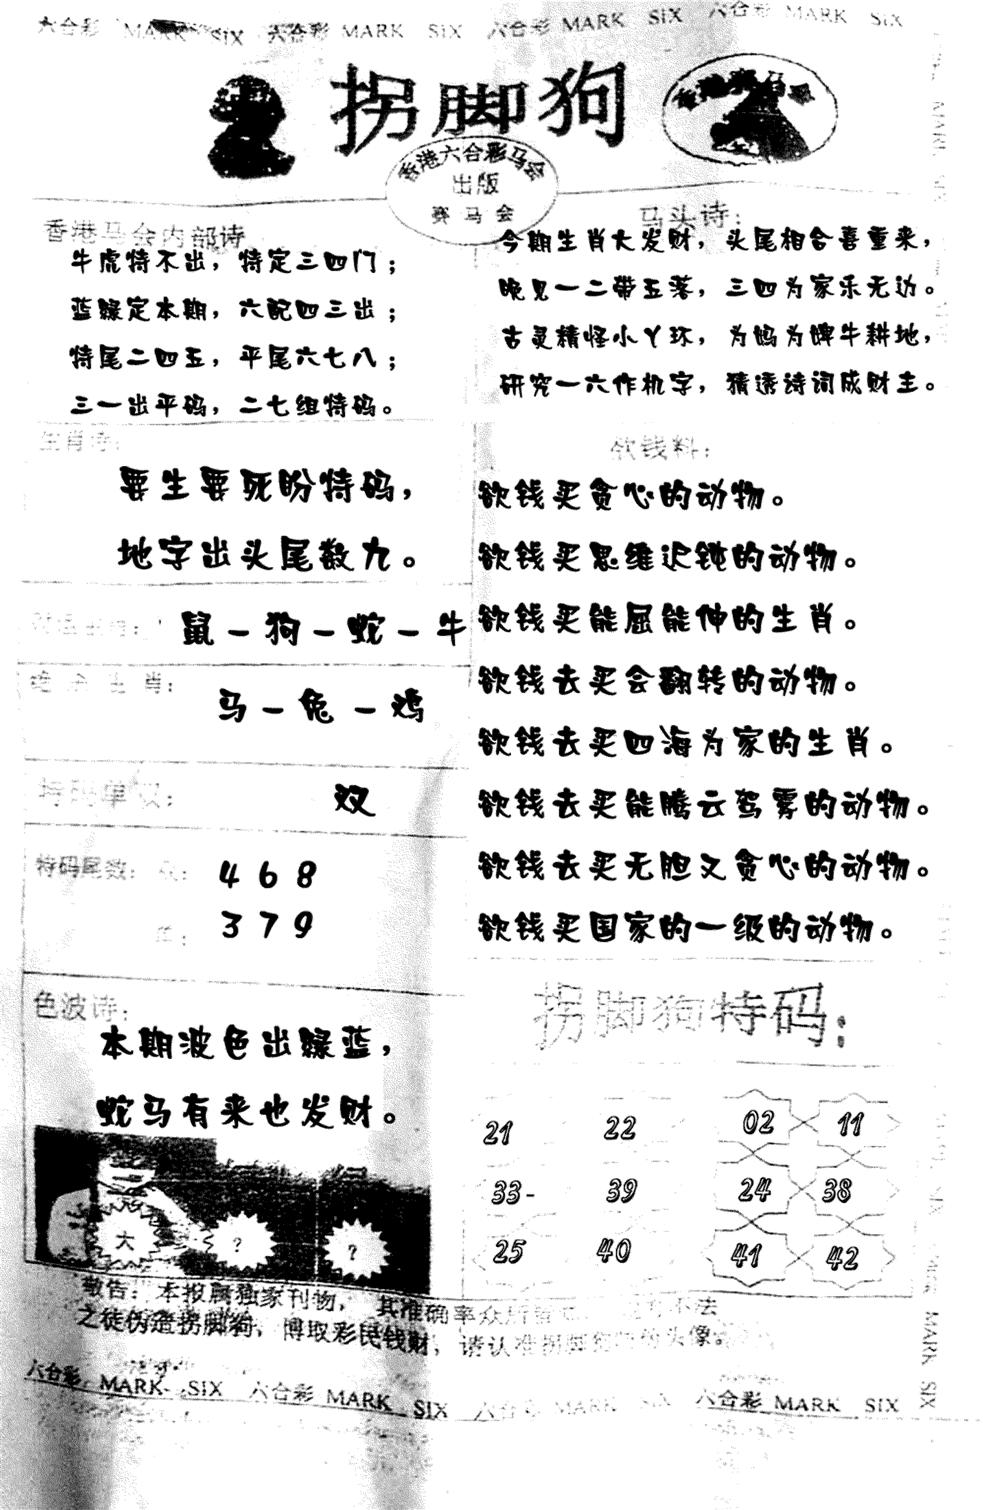 六合彩 MARK SIX 六合彩 MARK SIX 六合彩 MARK SIX 六合彩 MARK SIX
拐脚狗
香港赛马会
香港六合彩马会
出版
赛马会
香港马会内部诗
牛虎特不出，特定三四门；
蓝绿定本期，六配四三出；
特尾二四五，平尾六七八；
三一出平码，二七组特码。
马头诗：
今期生肖大发财，头尾相合喜重来，
晚见一二带五落，三四为家乐无边。
古灵精怪小丫环，为妈为婢牛耕地，
研究一六作机字，猜透诗词成财主。
生肖诗：
要生要死盼特码，
地字出头尾数九。
鼠－狗－蛇－牛
绝杀生肖：
马－兔－鸡
特码单双：
双
特码尾数：双：
4 6 8
单：
3 7 9
欲钱料：
欲钱买贪心的动物。
欲钱买思维迟钝的动物。
欲钱买能屈能伸的生肖。
欲钱去买会翻转的动物。
欲钱去买四海为家的生肖。
欲钱去买能腾云驾雾的动物。
欲钱去买无胆又贪心的动物。
欲钱买国家的一级的动物。
色波诗：
本期波色出绿蓝，
蛇马有来也发财。
大 ? ?
拐脚狗特码：
21 22 02 11
33- 39 24 38
25 40 41 42
敬告：本报属独家刊物，其准确率众所皆 不法
之徒伪造拐脚狗，博取彩民钱财，请认准拐脚狗 头像。
六合彩 MARK SIX 六合彩 MARK SIX 六合彩 MARK SIX 六合彩 MARK SIX
MARK SIX